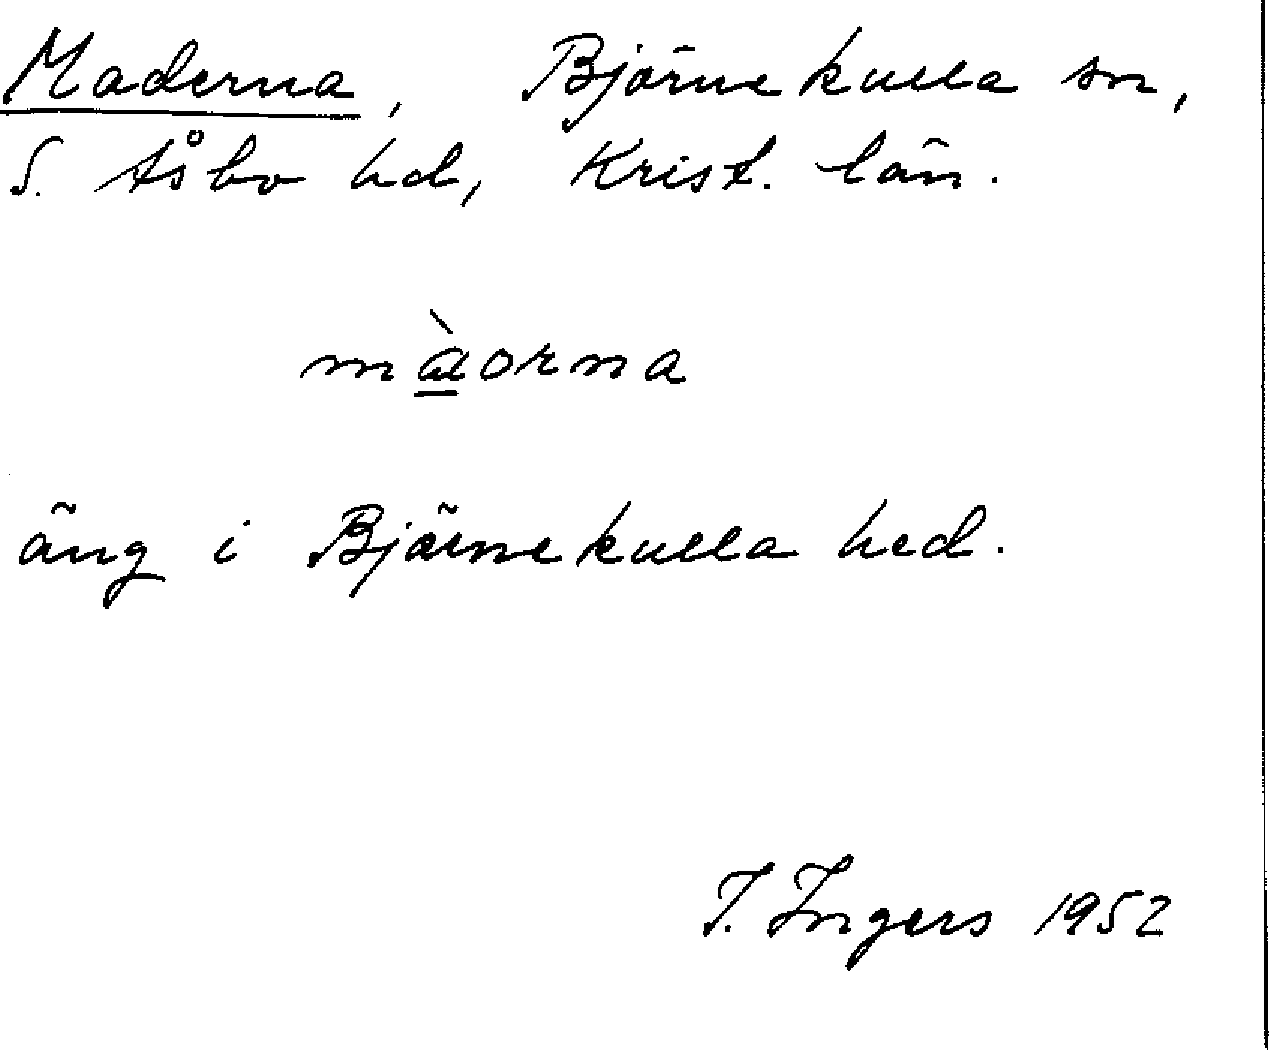 Maderna, Björnekulla sn,
S. Åsbo hd, Krist. län.
màorna
äng i Björnekulla hed.
I. Ingers 1952